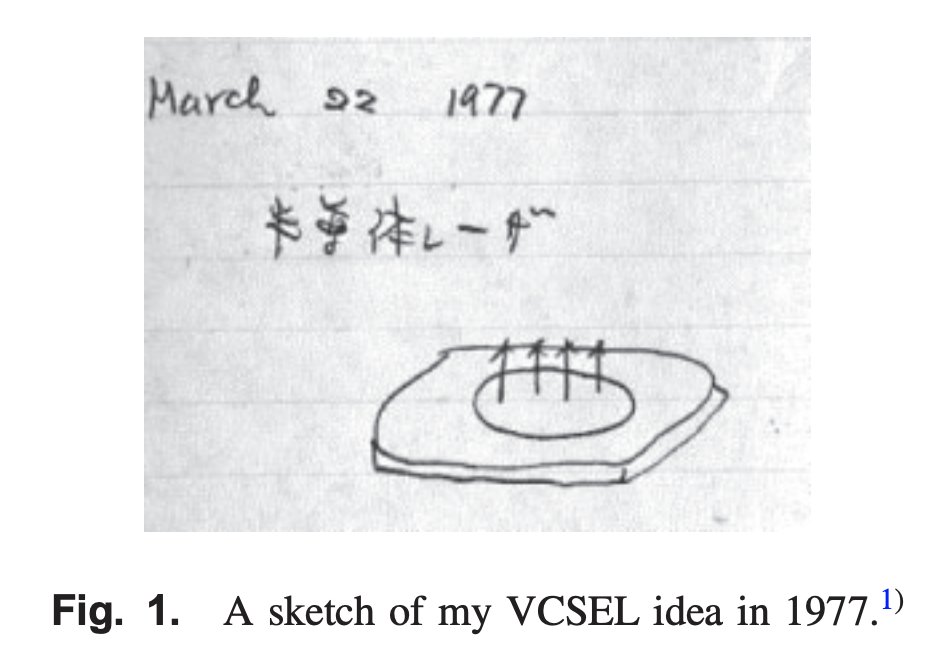 March 22 1977
半導体レーザ
Fig. 1. A sketch of my VCSEL idea in 1977.1)